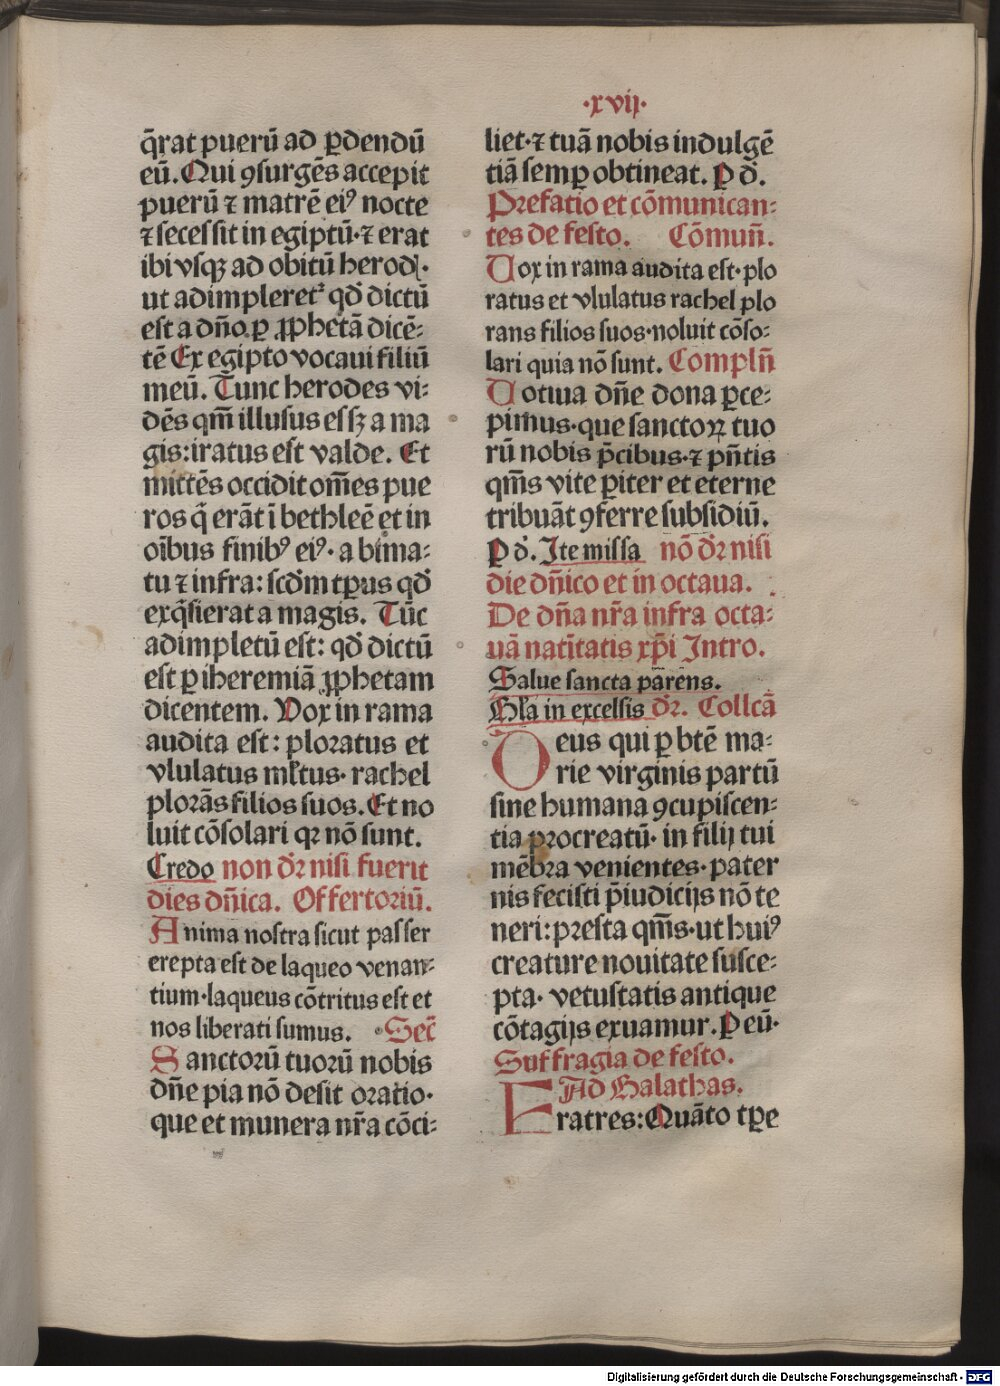 ·xvij·
q̄rat puerū ad ꝑdendū
eū. Qui ꝯsurgēs accepit
puerū ⁊ matrē eiꝰ nocte
⁊ secessit in egiptū·⁊ erat
ibi vsqꝫ ad obitū herodꝭ·
ut adimpleretᷣ qd̓ dictū
est a dn̄o ꝑ ꝓphetā dicē-
tē Ex egipto vocaui filiū
meū. Tunc herodes vi-
dēs qm̄ illusus essꝫ a ma
gis: iratus est valde. Et
mittēs occidit om̄es pue
ros q̄ erāt ī bethleē et in
oībus finibꝰ eiꝰ· a bima-
tu ⁊ infra: scd̓m tp̄us qd̓
exq̄sierat a magis. Tūc
adimpletū est: qd̓ dictū
est ꝑ iheremiā ꝓphetam
dicentem. Vox in rama
audita est: ploratus et
vlulatus ml̓tus· rachel
plorās filios suos. Et no
luit cōsolari qꝛ nō sunt.
Credo non dr̄ nisi fuerit
dies dn̄ica. Offertoriū.
Anima nostra sicut passer
erepta est de laqueo venan-
tium·laqueus cōtritus est et
nos liberati sumus. Sec̄
Sanctorū tuorū nobis
dn̄e pia nō desit oratio·
que et munera nr̄a cōci-
liet·⁊ tuā nobis indulgē
tiā semꝑ obtineat. P d̓.
Prefatio et cōmunican-
tes de festo. Cōmun̄.
Vox in rama audita est·plo
ratus et vlulatus rachel plo
rans filios suos·noluit cōso-
lari quia nō sunt. Compln̄
Votiua dn̄e dona ꝑce-
pimus·que sanctoꝝ tuo
rū nobis p̄cibus·⁊ pn̄tis
qm̄s vite ꝑiter et eterne
tribuāt ꝯferre subsidiū.
P d̓. Ite missa nō dr̄ nisi
die dn̄ico et in octaua.
De dn̄a nr̄a infra octa-
uā natītatis xp̄i Intro.
Salue sancta parens.
Gl̓a in excelsis dr̄. Collcā
Deus qui ꝑ btē ma-
rie virginis partū
sine humana ꝯcupiscen-
tia procreatū· in filij tui
mēbra venientes· pater
nis fecisti p̄iudicijs nō te
neri: presta qm̄s·ut huiꝰ
creature nouitate susce-
pta· vetustatis antique
cōtagijs exuamur. P eū·
Suffragia de festo.
Ad Galathas.
Fratres: Quāto tꝑe
Digitalisierung gefördert durch die Deutsche Forschungsgemeinschaft - DFG